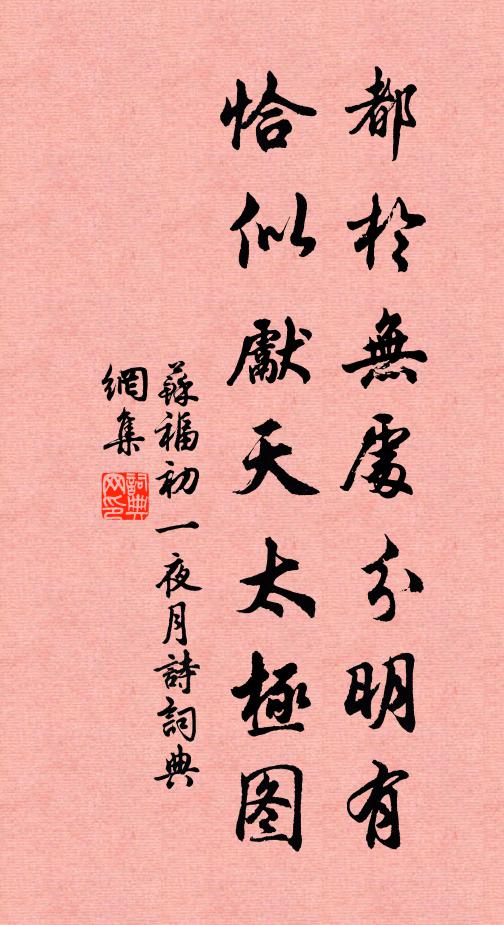 都於無處分明有
恰似獻天太極图
蘇福初一夜月詩詞典
網集
詞典
网印